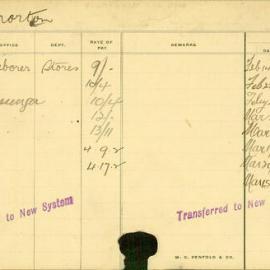 orton
OFFICE DEPT. RATE OF PAY REMARKS DA
aborer Stores 9/- Feb
10/4 Feb
10/4 July
12/- Mar
13/11 Mar
4 9 2 Mar
4 17 2 Mar
Mar
to New System
Transferred to New
W. C. PENFOLD & CO.